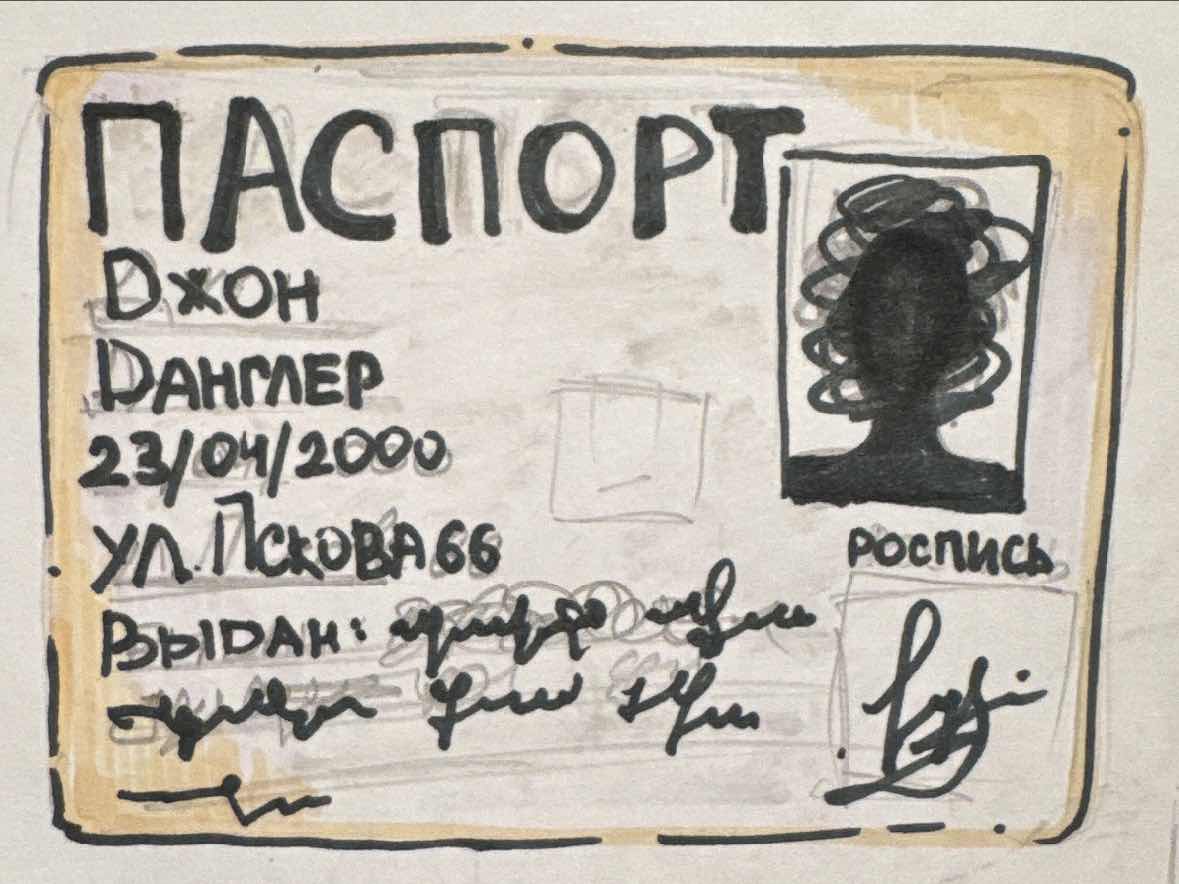 ПАСПОРТ
Джон
Данглер
23/04/2000
ул. Пскова 66
Выдан:
роспись